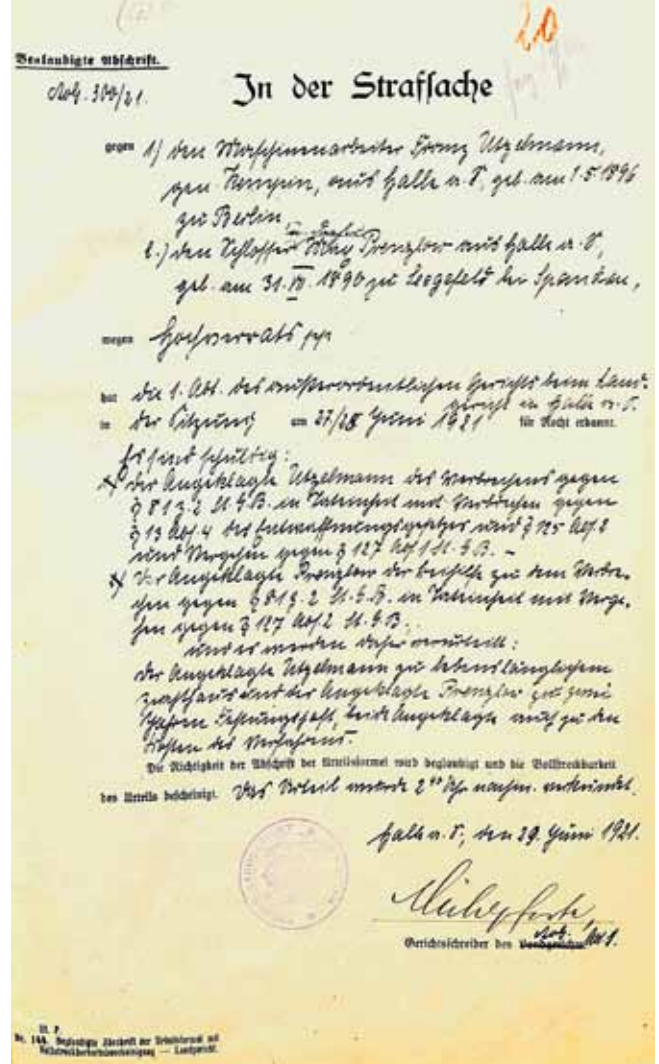 20
Beglaubigte Abschrift.
300/21.
In der Strafsache
gegen 1) den Maschinenarbeiter Franz Utzelmann,
gen. Kempin, aus Halle a. S., geb. am 1.5.1896
zu Berlin,
2.) den Schlosser Max Prenzlow aus Halle a. S.,
geb. am 31. 1890 zu Seegefeld bei Spandau,
wegen Hochverrats pp.
hat die 1. Abt. des außerordentlichen Gerichts beim Land-
gericht in Halle a. S.
in der Sitzung am 27/28 Juni 1921 für Recht erkannt.
Es sind schuldig:
der Angeklagte Utzelmann des Verbrechens gegen
§ 81 Z. 2 St. G. B. in Tateinheit mit Verbrechen gegen
§ 13 Abs. 4 des Entwaffnungsgesetzes und § 125 Abs. 2
und Vergehen gegen § 127 Abs. 1 St. G. B. –
der Angeklagte Prenzlow der Beihilfe zu dem Verbre-
chen gegen § 81 Z. 2 St. G. B. in Tateinheit mit Verge-
hen gegen § 127 Abs. 2 St. G. B.
und es werden daher verurteilt:
der Angeklagte Utzelmann zu lebenslänglichem
Zuchthaus und der Angeklagte Prenzlow zu zwei
Jahren Festungshaft, beide Angeklagte auch zu den
Kosten des Verfahrens.
Die Richtigkeit der Abschrift der Urteilsformel wird beglaubigt und die Vollstreckbarkeit
des Urteils bescheinigt. Das Urteil wurde 2 Uhr nachm. verkündet.
Halle a. S., den 29. Juni 1921.
Gerichtsschreiber des Abt 1.
Nr. 144. Beglaubigte Abschrift der Urteilsformel mit
Vollstreckbarkeitsbescheinigung — Landgericht.